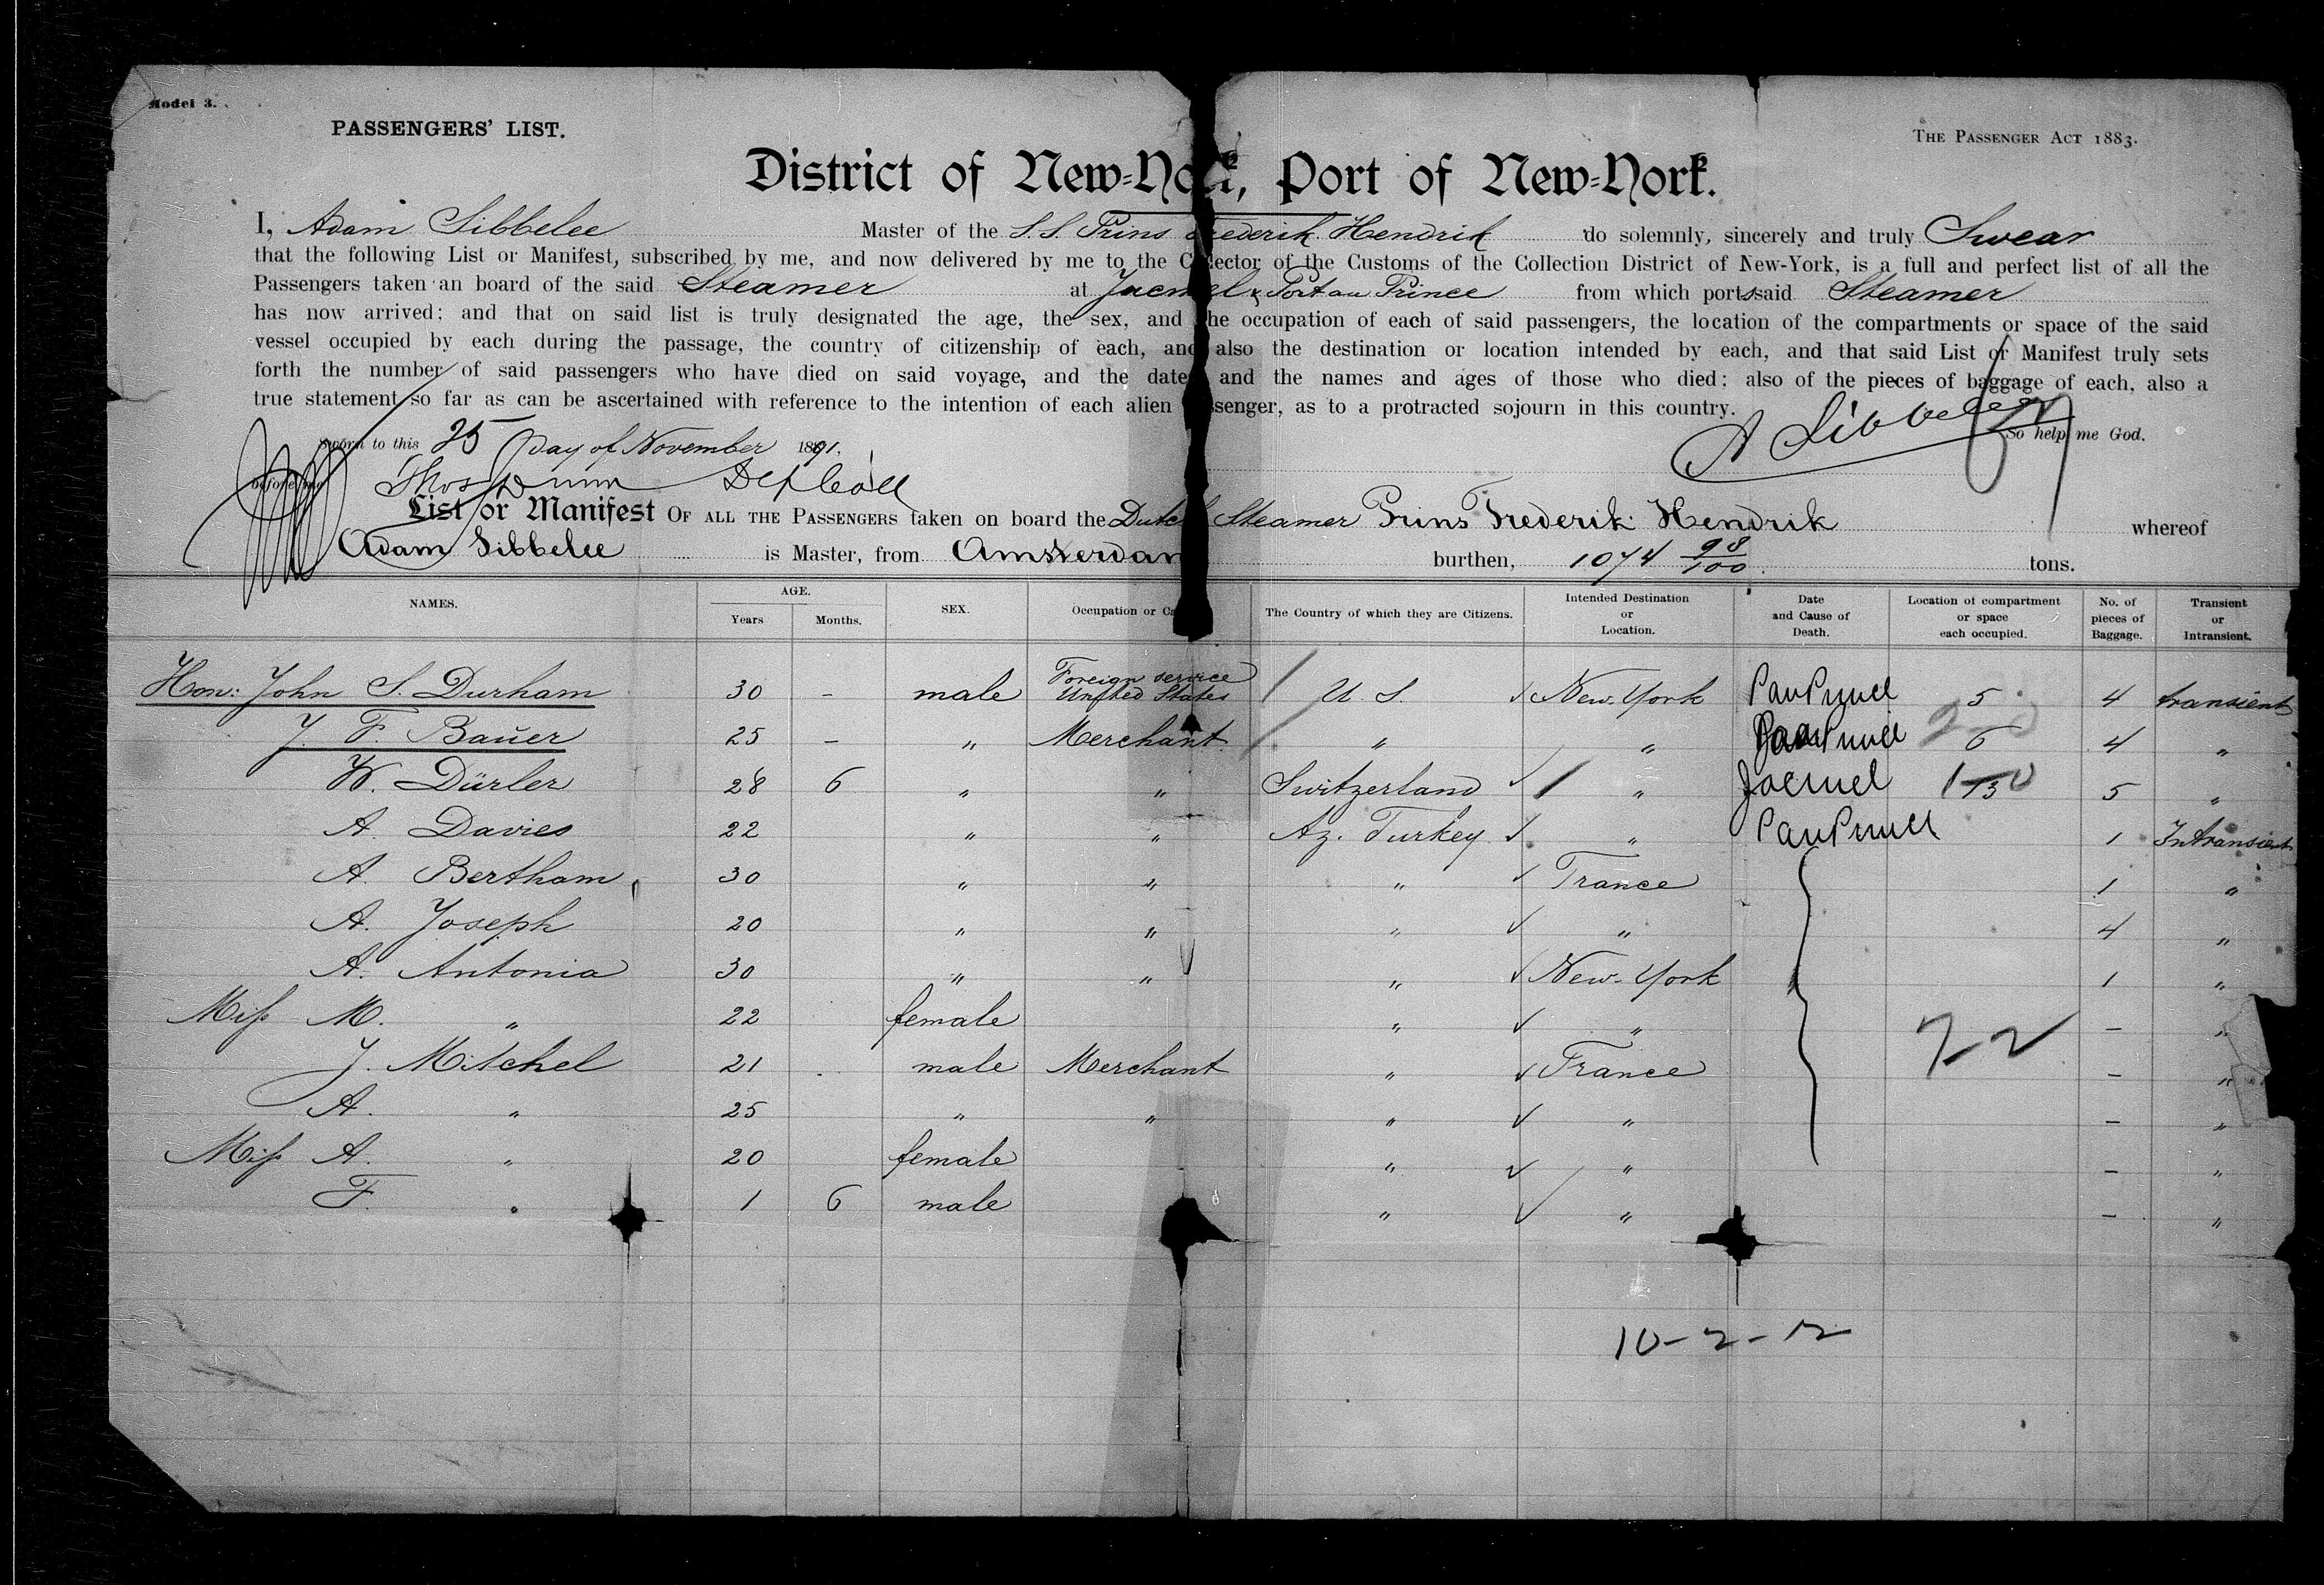 Model 3.
PASSENGERS' LIST.
THE PASSENGER ACT 1883.
District of New-York, Port of New-York.
I, Adam Sibbelee Master of the S.S. Prins Frederik Hendrik do solemnly, sincerely and truly Swear
that the following List or Manifest, subscribed by me, and now delivered by me to the Collector of the Customs of the Collection District of New-York, is a full and perfect list of all the
Passengers taken an board of the said Steamer at Jacmel & Port au Prince from which ports said Steamer
has now arrived; and that on said list is truly designated the age, the sex, and the occupation of each of said passengers, the location of the compartments or space of the said
vessel occupied by each during the passage, the country of citizenship of each, and also the destination or location intended by each, and that said List or Manifest truly sets
forth the number of said passengers who have died on said voyage, and the dates and the names and ages of those who died; also of the pieces of baggage of each, also a
true statement so far as can be ascertained with reference to the intention of each alien passenger, as to a protracted sojourn in this country.
A Sibbelee
So help me God.
Sworn to this 25 Day of November 1891.
before me Thos Dunn Dep Coll
List or Manifest OF ALL THE PASSENGERS taken on board the Dutch Steamer Prins Frederik Hendrik whereof
Adam Sibbelee is Master, from Amsterdam burthen, 1074 98/100 tons.
NAMES. AGE. Years Months. SEX. Occupation or Ca The Country of which they are Citizens. Intended Destination or Location. Date and Cause of Death. Location of compartment or space each occupied. No. of pieces of Baggage. Transient or Intransient.
Hon: John S. Durham 30 - male Foreign service United States U. S. New York PauPrince 5 4 transient
J. F. Bauer 25 - " Merchant " " PauPrince 6 4 "
W. Dürler 28 6 " " Switzerland " Jacmel 13 5 "
A. Davies 22 " " Az. Turkey " PauPrince 1 Intransient
A. Bertham 30 " " " France 1 "
A. Joseph 20 " " " " 4 "
A. Antonia 30 " " " New-York 1 "
Miss M. " 22 female " " - "
J. Mitchel 21 male Merchant " France - "
A. " 25 " " " " - "
Miss A. " 20 female " " - "
F. " 1 6 male " " - "
10-2-12